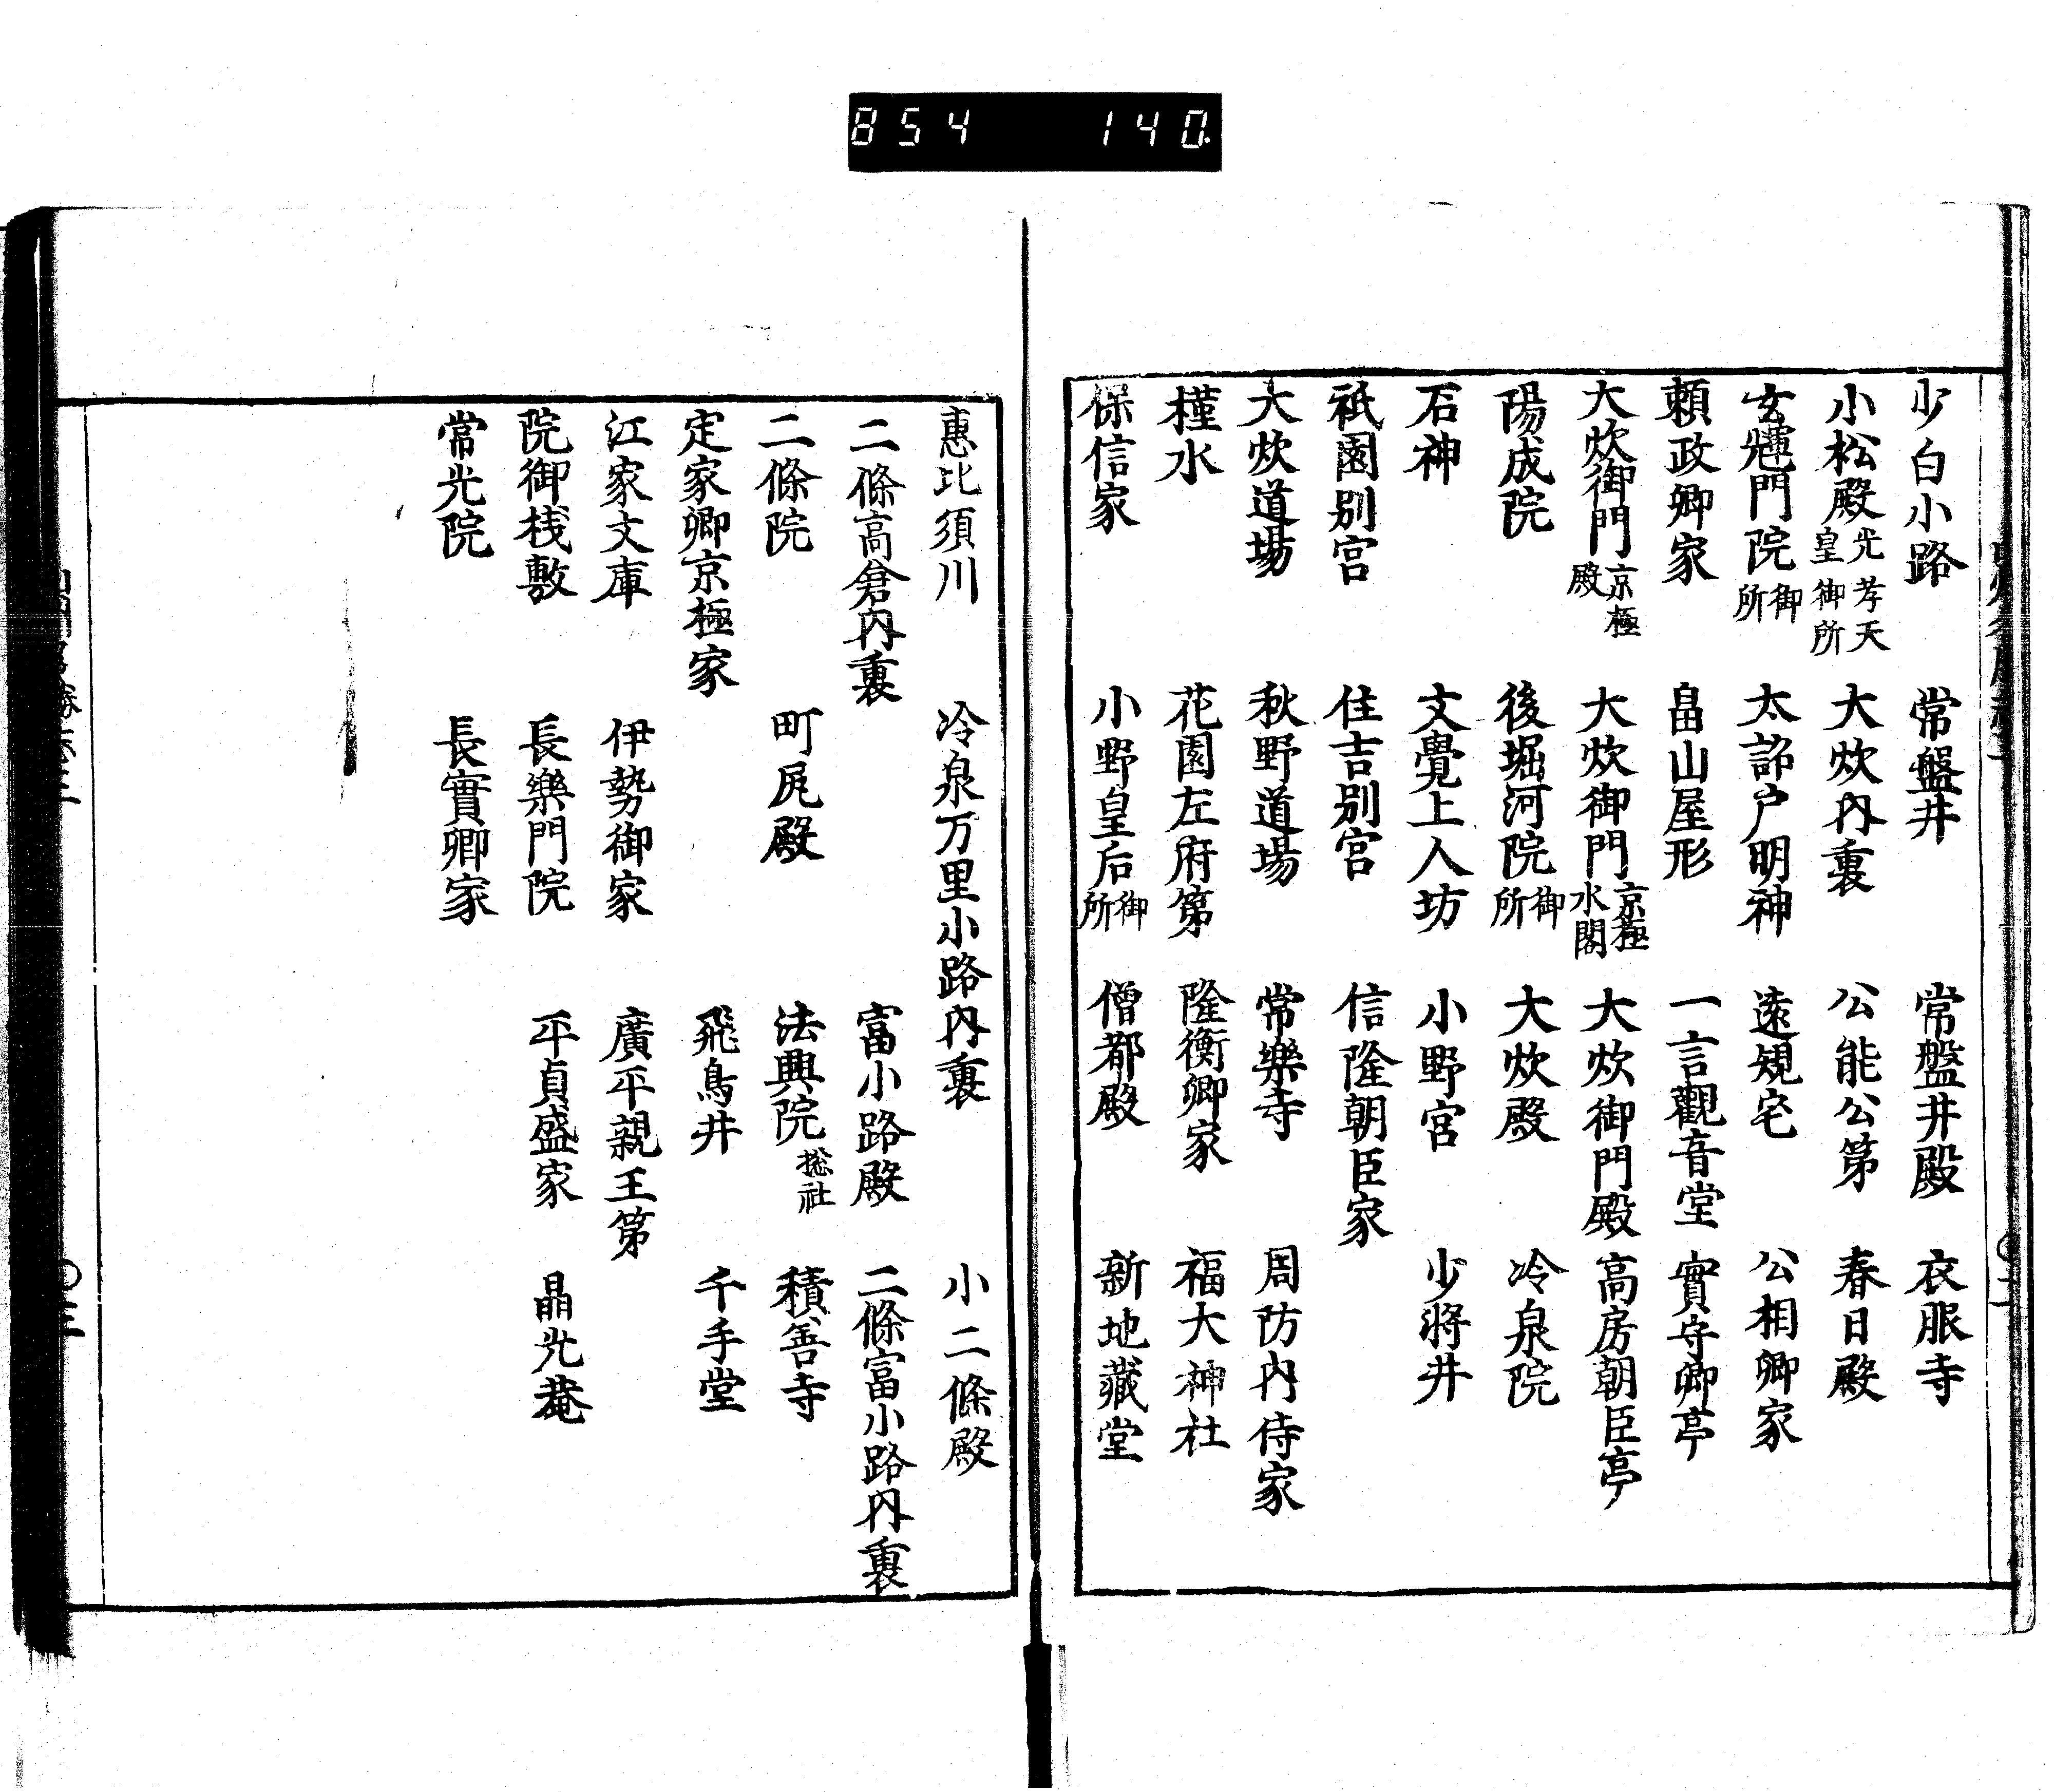 854 140.
少白小路 常盤井 常盤井殿 衣服寺
小松殿光孝天皇御所 大炊内裏 公能公第 春日殿
玄輝門院御所 太詔戸明神 遠規宅 公相卿家
頼政卿家 畠山屋形 一言觀音堂 實守卿亭
大炊御門京極殿 大炊御門京極水閣 大炊御門殿 高房朝臣亭
陽成院 後堀河院御所 大炊殿 冷泉院
石神 文覺上人坊 小野宮 少將井
祇園別宮 住吉別宮 信隆朝臣家
大炊道場 秋野道場 常樂寺 周防内侍家
槿水 花園左府第 隆衡卿家 福大神社
保信家 小野皇后御所 僧都殿 新地藏堂
惠比須川 冷泉万里小路内裏 小二條殿
二條高倉内裏 富小路殿 二條富小路内裏
二條院 町尻殿 法興院総社 積善寺
定家卿京極家 飛鳥井 千手堂
江家文庫 伊勢御家 廣平親王第
院御桟敷 長樂門院 平貞盛家 晶光菴
常光院 長實卿家
〇三